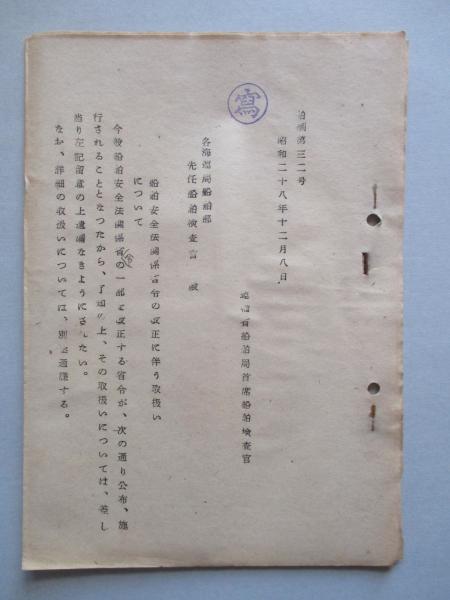 舶検第三二号
昭和二十八年十二月八日
寫
運輸省船舶局首席船舶検査官
各海運局船舶部
先任船舶検査官 殿
船舶安全法関係省令の改正に伴う取扱い
について
今般船舶安全法関係省令の一部を改正する省令が、次の通り公布、施
行されることとなつたから、了知の上、その取扱いについては、差し
当り左記留意の上遺漏なきようにされたい。
なお、詳細の取扱いについては、別途通牒する。